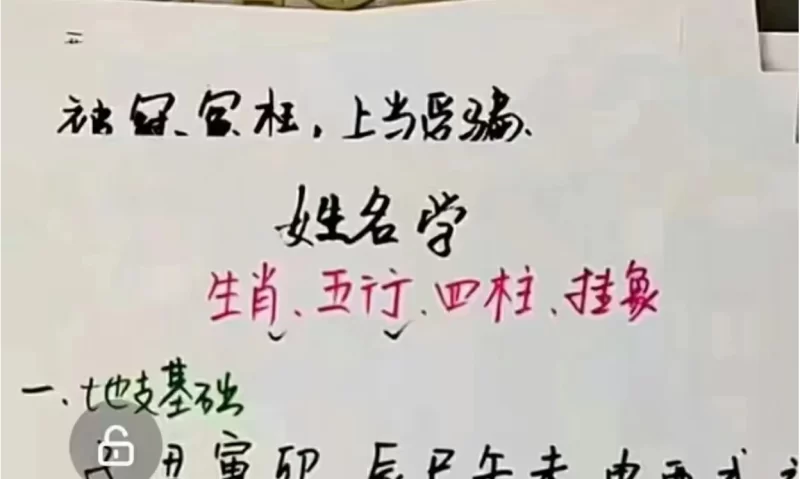 枉，上当受骗、
姓名学
生肖、五行、四柱、挂象
一、地支基础
丑寅卯 辰巳午未 申酉戌